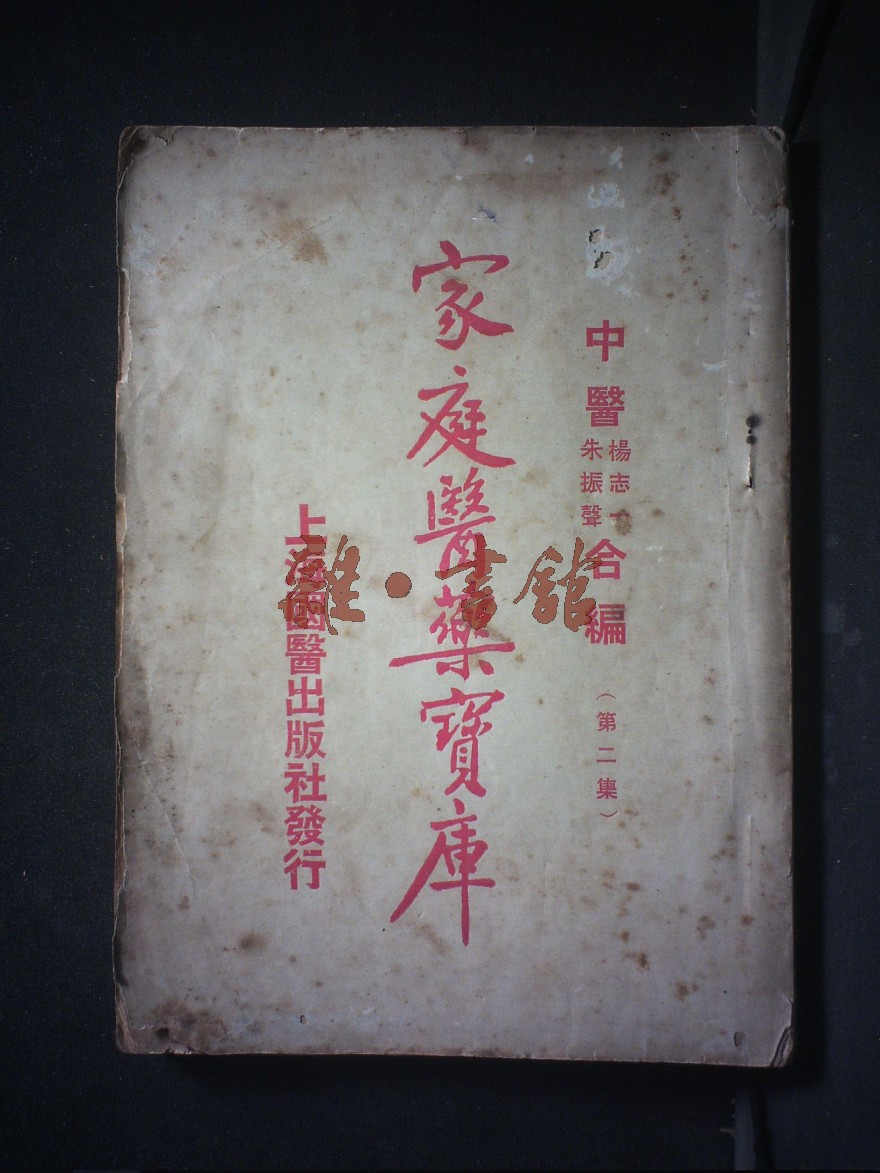 中醫
楊志一
朱振聲
合編
(第二集)
家庭醫藥寶庫
上海國醫出版社發行
雜·書館